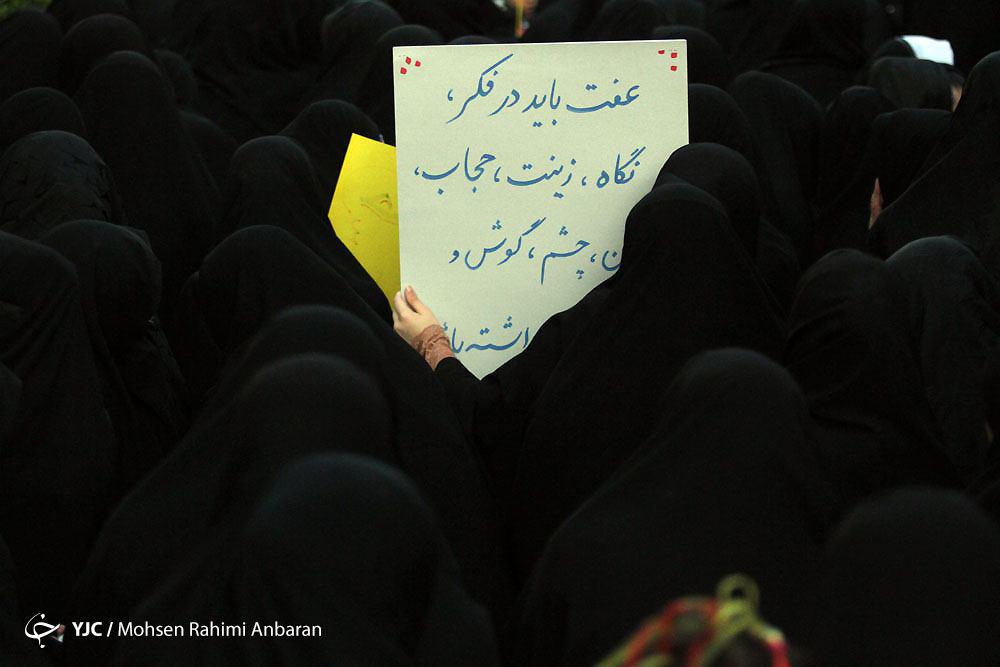 عفت باید در فکر،
نگاه، زینت، حجاب،
چشم، گوش و
YJC / Mohsen Rahimi Anbaran